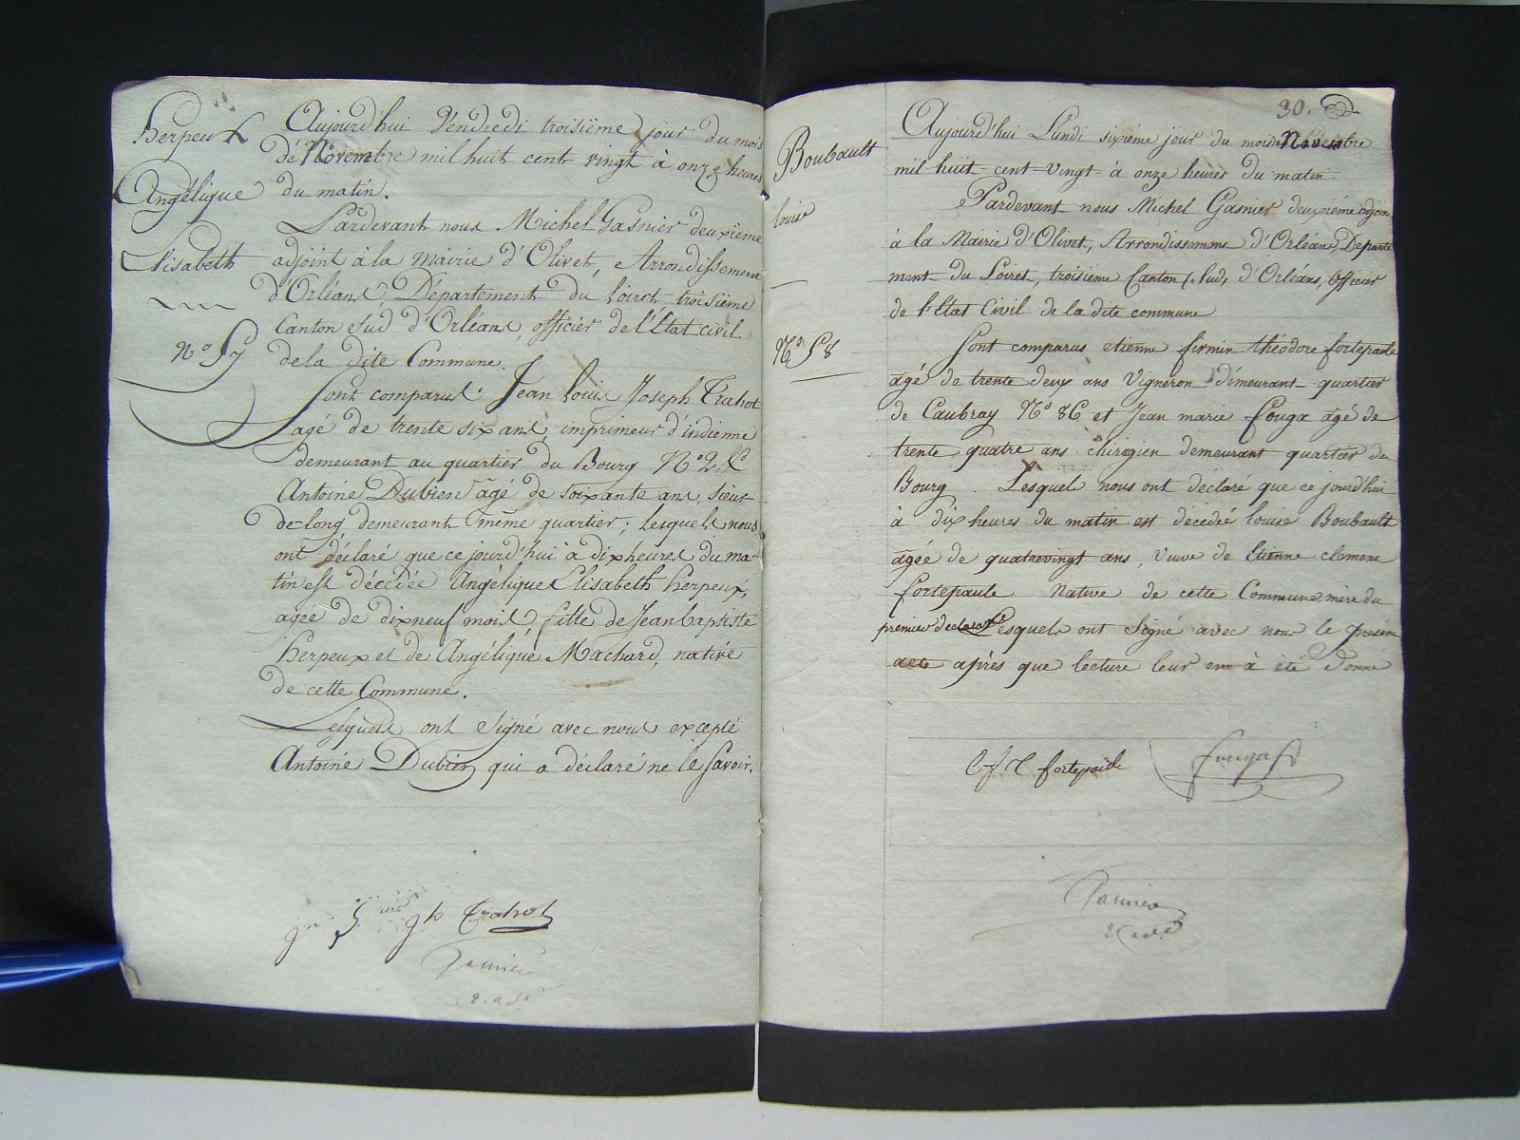 Herpeux
Angélique
Elisabeth
N° 57
Aujourd'hui Vendredi troisième jour du mois
de Novembre mil huit cent vingt à onze heures
du matin.
Pardevant nous Michel Gasnier deuxième
adjoint à la Mairie d'Olivet, Arrondissement
d'Orléans, Département du Loiret troisième
Canton Sud d'Orléans, officier de l'Etat civil
de la dite Commune.
Sont comparus Jean Louis Joseph Trahot
agé de trente six ans, imprimeur d'indienne
demeurant au quartier du Bourg N° 2. &
Antoine Dubien agé de soixante ans, sieur
de long demeurant même quartier; Lesquels nous
ont déclaré que ce jourd'hui à dix heures du ma-
tin est décédée Angélique Elisabeth Herpeux,
agée de dixneuf mois fille de Jean baptiste
Herpeux et de Angélique Machard, native
de cette Commune.
Lesquels ont Signé avec nous excepté
Antoine Dubien qui a déclaré ne le Savoir.
Trahot
30.
Boubault
louise
N° 58
Aujourd'hui Lundi sixième jour du mois de Novembre
mil huit cent vingt à onze heures du matin
Pardevant nous Michel Gasnier deuxième adjoint
à la Mairie d'Olivet, Arrondissement d'Orléans, Departe
ment du Loiret, troisieme Canton Sud, d'Orléans, Officier
de l'Etat Civil de la dite commune
Sont comparus etienne firmin théodore fortepaule
agé de trente deux ans Vigneron démeurant quartier
de Caubray N° 86 et Jean marie fouga agé de
trente quatre ans chirogien demeurant quartier du
Bourg. Lesquels nous ont déclaré que ce jourd'hui
à dix heures du matin est décedée louise Boubault
agée de quatrevingt ans, Veuve de Etienne clement
fortepaule Native de cette Commune mere du
premier declarant Lesquels ont Signé avec nous le présent
acte après que lecture leur en à été Donné
e f t fortepaule